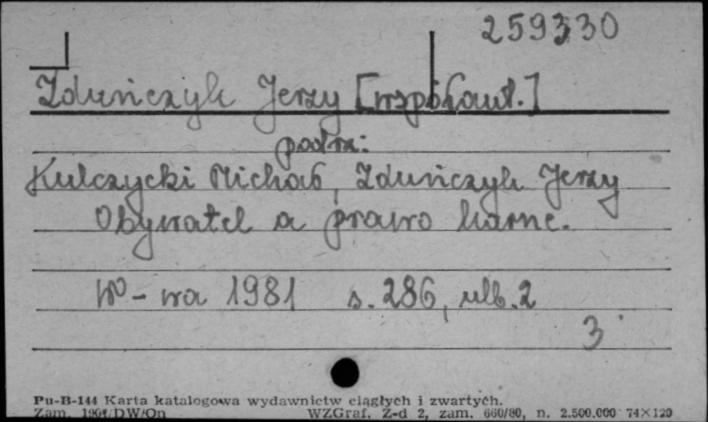 259330
Zduńczyk Jerzy [współaut.]
patrz:
Kulczycki Michał, Zduńczyk Jerzy
Obywatel a prawo karne.
W-wa 1981 s. 286, nlb. 2
3
Pu-B-144 Karta katalogowa wydawnictw ciągłych i zwartych.
Zam. DW/On WZGraf. Z-d 2, zam. 660/80, n. 2.500.000 74×120